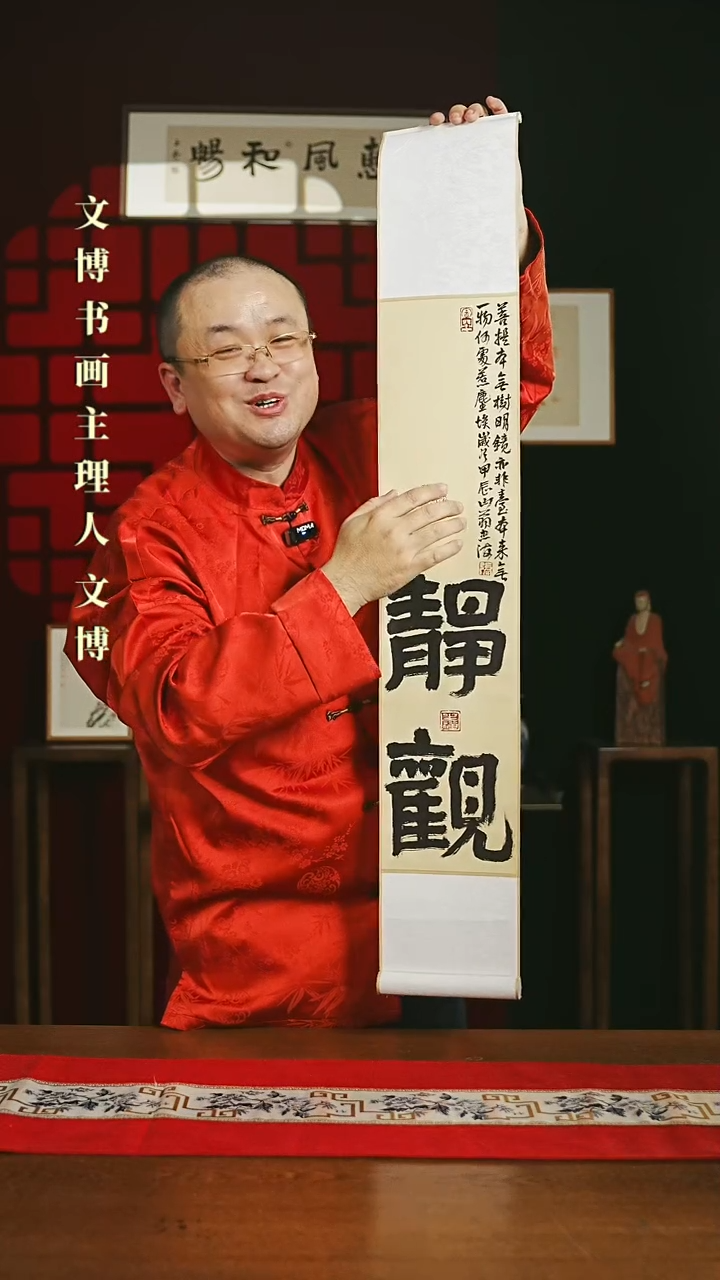 惠風和暢
文博书画主理人文博
菩提本無樹明鏡亦非臺本來無
一物何處惹塵埃歲次甲辰
靜觀
MOMA